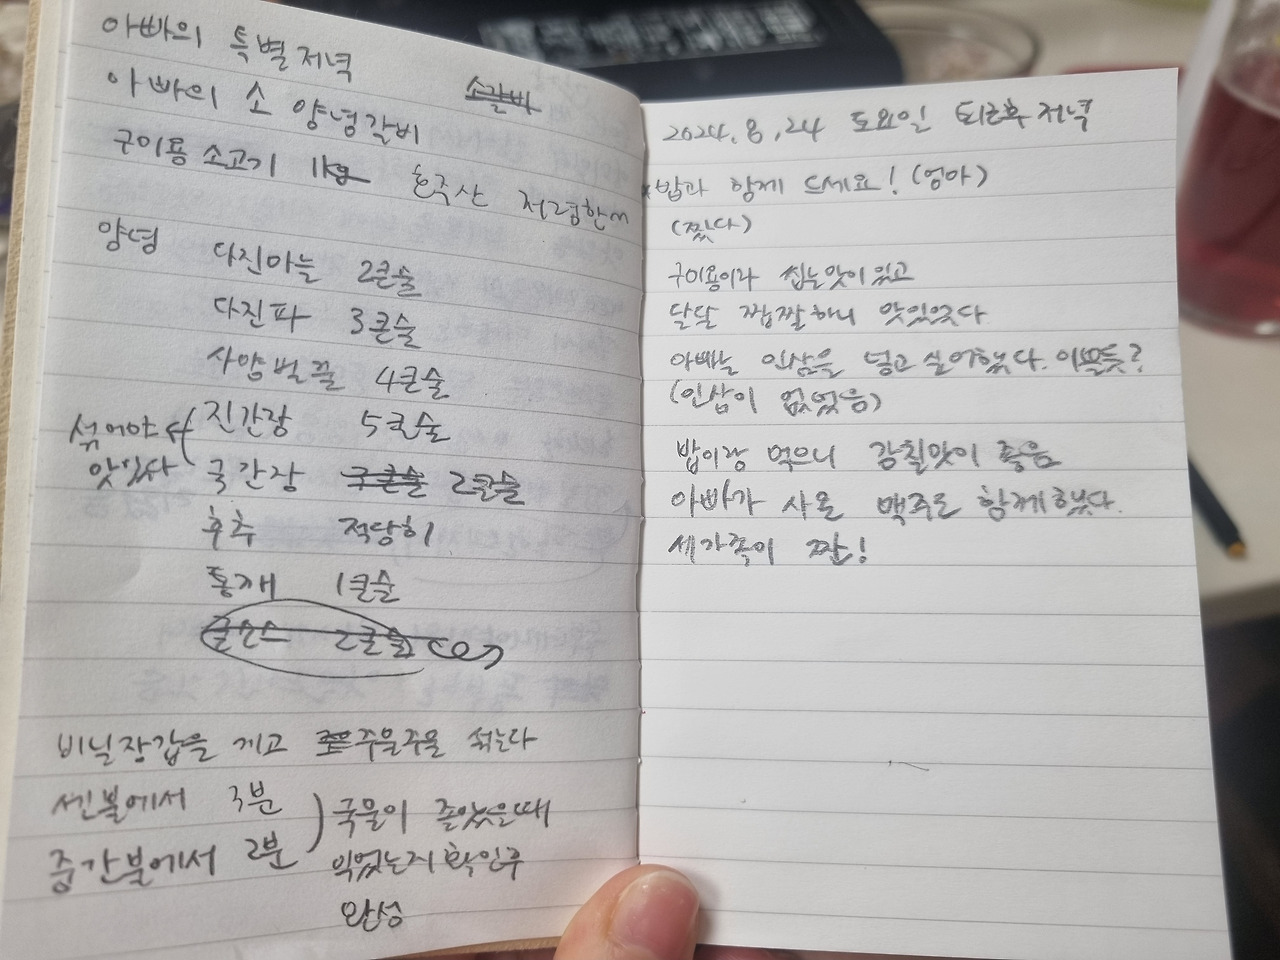 아빠의 특별저녁
소갈비
아빠의 소 양녕갈비
구이용 소고기 1kg 호주산 저렴한
양녕 다진마늘 2큰술
다진파 3큰술
사양벌꿀 4큰술
진간장 5큰술
섞어야
맛있다
국간장 국큰술 2큰술
후추 적당히
통깨 1큰술
굴소스 2큰술
비닐장갑을 끼고 주울주울 섞는다
센불에서 3분
중간불에서 2분
국물이 졸았을때
익었는지 확인후
완성
2024.8.24 토요일 퇴근후 저녁
*밥과 함께 드세요! (엄마)
(짰다)
구이용이라 씹는맛이 있고
달달 짭짤하니 맛있었다
아빠는 인삼을 넣고 싶어했다.
(인삼이 없었음)
밥이랑 먹으니 감칠맛이 좋음
아빠가 사온 맥주도 함께했다.
세가족이 짠!